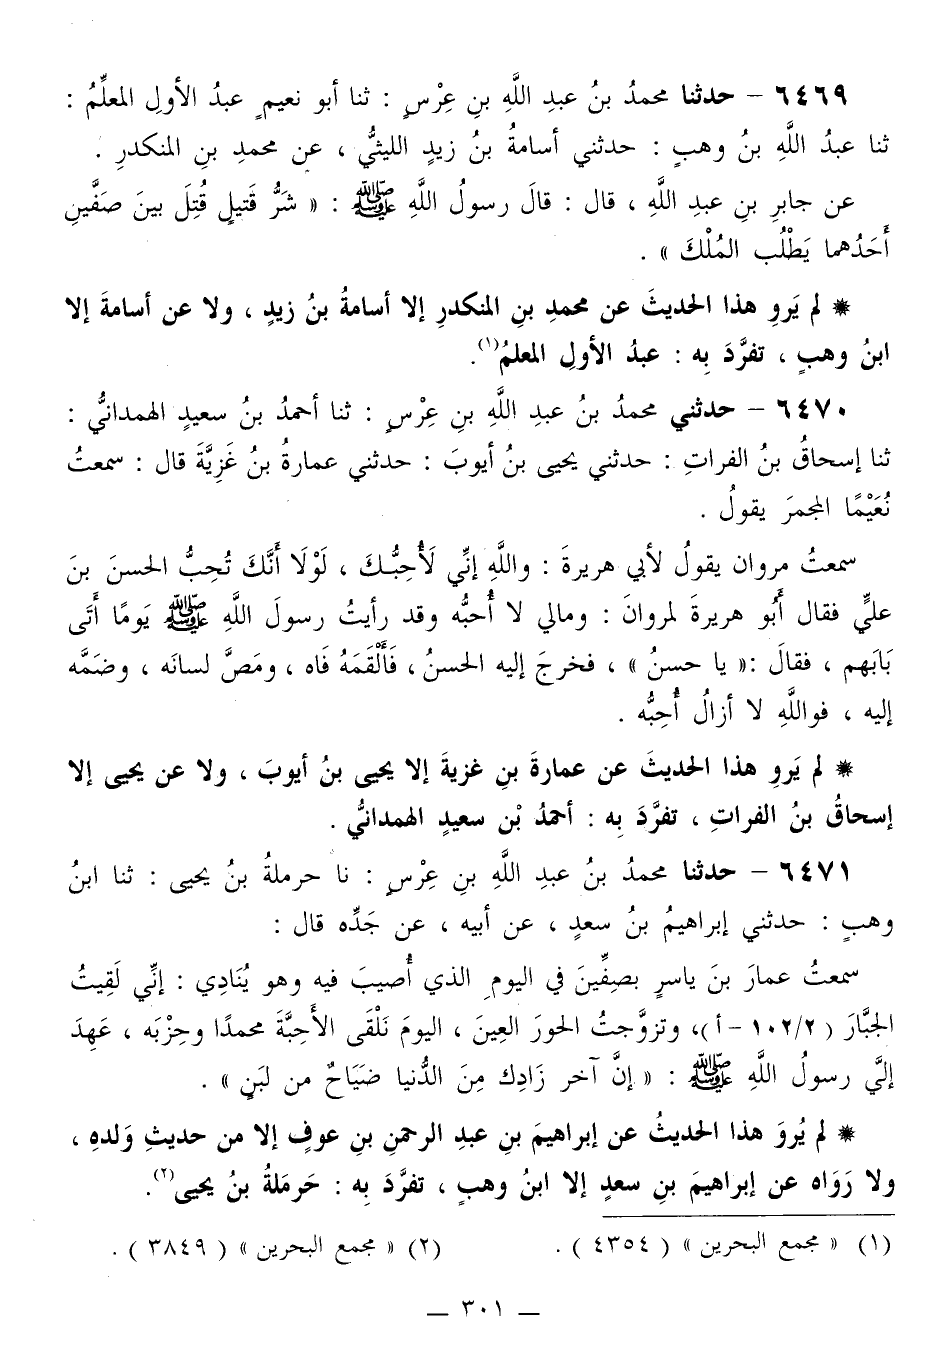 ٦٤٦٩ - حدثنا محمدُ بنُ عبدِ اللَّهِ بنِ عِرْسٍ : ثنا أبو نعيمٍ عبدُ الأولِ المعلِّمُ :
ثنا عبدُ اللَّهِ بنُ وهبٍ : حدثني أسامةُ بنُ زيدٍ الليثيُّ ، عن محمدِ بنِ المنكدرِ .
عن جابرِ بنِ عبدِ اللَّهِ ، قال : قالَ رسولُ اللَّهِ ﷺ : « شَرُّ قَتيلٍ قُتِلَ بينَ صَفَّينِ
أَحَدُهما يَطْلُب المُلْكَ » .
* لم يَروِ هذا الحديثَ عن محمدِ بنِ المنكدرِ إلا أسامةُ بنُ زيدٍ ، ولا عن أسامةَ إلا
ابنُ وهبٍ ، تفرَّدَ بِه : عبدُ الأولِ المعلمُ(١).
٦٤٧٠ - حدثني محمدُ بنُ عبدِ اللَّهِ بنِ عِرْسٍ : ثنا أحمدُ بنُ سعيدٍ الهمدانيُّ :
ثنا إسحاقُ بنُ الفراتِ : حدثني يحيى بنُ أيوبَ : حدثني عمارةُ بنُ غَزِيَّةَ قال : سمعتُ
نُعَيْمًا المجمرَ يقولُ .
سمعتُ مروان يقولُ لأبي هريرةَ : واللَّهِ إنِّي لَأُحِبُّكَ ، لَوْلَا أَنَّكَ تُحِبُّ الحسنَ بنَ
عليٍّ فقال أَبُو هريرةَ لمروانَ : ومالي لا أُحبُّه وقد رأيتُ رسولَ اللَّهِ ﷺ يَومًا أَتَى
بَابَهم ، فقالَ :« يا حسنُ » ، فخرجَ إليه الحسنُ ، فَأَلْقَمَهُ فَاه ، ومَصَّ لسانَه ، وضَمَّه
إليه ، فواللَّهِ لا أزالُ أُحِبُّه .
* لم يَروِ هذا الحديثَ عن عمارةَ بنِ غزيةَ إلا يحيى بنُ أيوبَ ، ولا عن يحيى إلا
إسحاقُ بنُ الفراتِ ، تفرَّدَ بِه : أحمدُ بْن سعيدٍ الهمدانيُّ .
٦٤٧١ - حدثنا محمدُ بنُ عبدِ اللَّهِ بنِ عِرْسٍ : نا حرملةُ بنُ يحيى : ثنا ابنُ
وهبٍ : حدثني إبراهيمُ بنُ سعدٍ ، عن أبيه ، عن جَدِّه قال :
سمعتُ عمارَ بنَ ياسرٍ بصِفِّينَ في اليومِ الذي أُصيبَ فيه وهو يُنَادِي : إنِّي لَقِيتُ
الجبَّارَ ( ١٠٢/٢ - أ )، وتزوَّجتُ الحورَ العِينَ ، اليومَ نَلْقَى الأَحِبَّةَ محمدًا وحِزْبَه ، عَهِدَ
إليَّ رسولُ اللَّهِ ﷺ : « إنَّ آخر زَادِك مِنَ الدُّنيا ضَيَاحٌ من لبَنٍ » .
* لم يُروَ هذا الحديثُ عن إبراهيمَ بنِ عبدِ الرحمنِ بنِ عوفٍ إلا من حديثِ وَلدهِ ،
ولا رَوَاه عن إبراهيمَ بنِ سعدٍ إلا ابنُ وهبٍ ، تفرَّدَ بِه : حَرمَلةُ بنُ يحيى(٢).
(١) « مجمع البحرين » ( ٤٣٥٤ ) . (٢) « مجمع البحرين » ( ٣٨٤٩ ) .
— ٣٠١ —